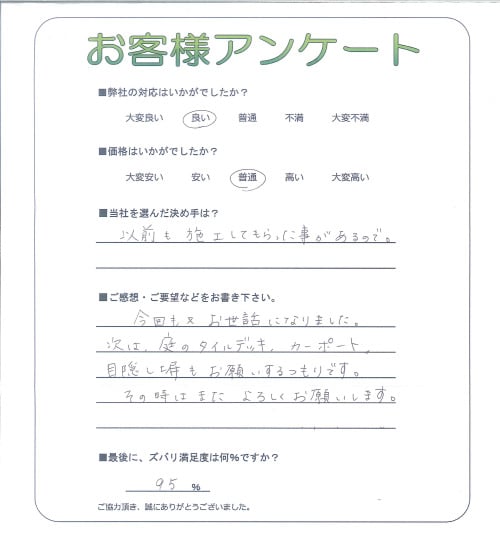 お客様アンケート
■弊社の対応はいかがでしたか？
大変良い 良い 普通 不満 大変不満
■価格はいかがでしたか？
大変安い 安い 普通 高い 大変高い
■当社を選んだ決め手は？
以前も施工してもらった事があるので。
■ご感想・ご要望などをお書き下さい。
今回も又お世話になりました。
次は、庭のタイルデッキ、カーポート、
目隠し塀もお願いするつもりです。
その時はまたよろしくお願いします。
■最後に、ズバリ満足度は何％ですか？
95 ％
ご協力頂き、誠にありがとうございました。